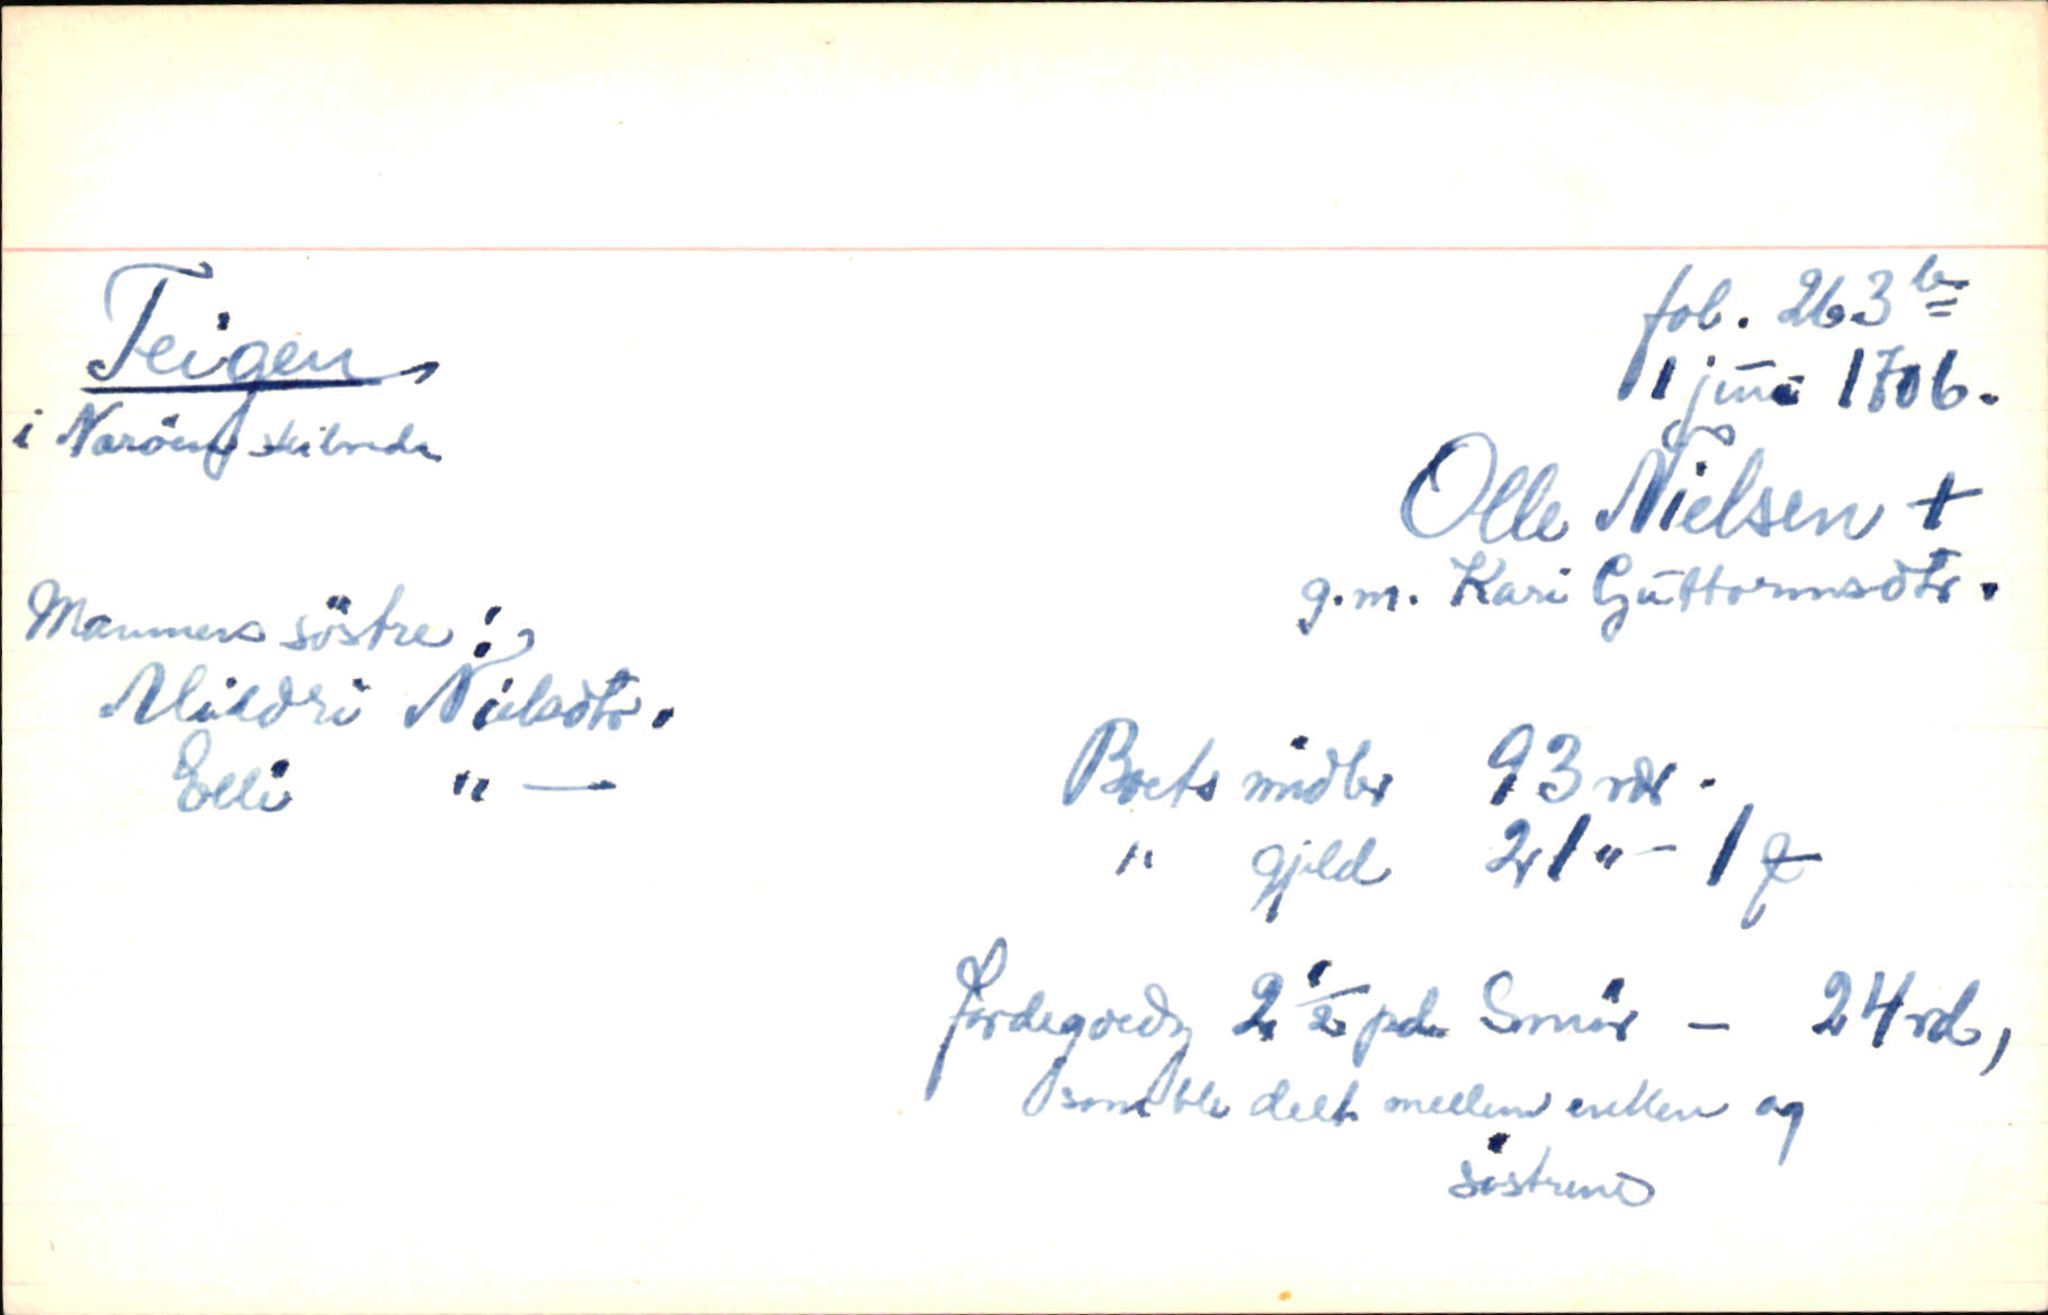 Teigen
i Naröens skibrede
fol. 263 b
11 juni 1706.
Olle Nielsen +
g.m. Kari Guttormsdtr.
Mannens söstre:
Mildri Nielsdtr.
Elli " —
Boets midler 93 rdr.
" gjeld 21 " - 1 ƶ
Jordegoeds 2 1/2 pd. Smör - 24 rd,
som ble delt mellem enken og
söstrene